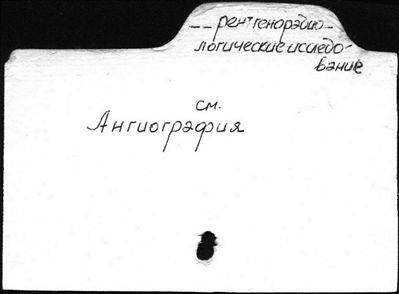 -- рентгенорадио-
логические исследо-
вание
см.
Ангиография